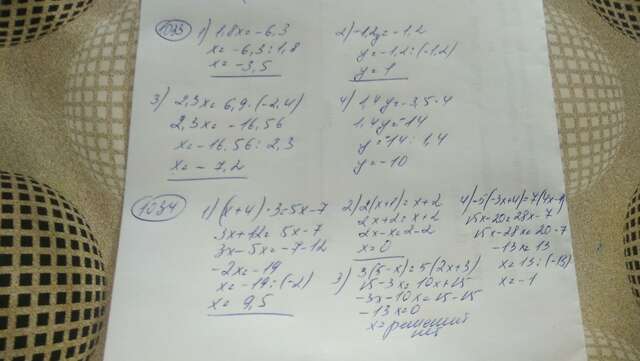 1033
1) 1,8x = -6,3
x = -6,3 : 1,8
x = -3,5
2) -1,2y = -1,2
y = -1,2 : (-1,2)
y = 1
3) 2,3x = 6,9 · (-2,4)
2,3x = -16,56
x = -16,56 : 2,3
x = -7,2
4) 1,4y = -3,5 · 4
1,4y = -14
y = -14 : 1,4
y = -10
1034
1) (x+4) · 3 = 5x - 7
3x + 12 = 5x - 7
3x - 5x = -7 - 12
-2x = -19
x = -19 : (-2)
x = 9,5
2) 2(x+1) = x + 2
2x + 2 = x + 2
2x - x = 2 - 2
x = 0
3) 3(5 - x) = 5(2x + 3)
15 - 3x = 10x + 15
-3x - 10x = 15 - 15
-13x = 0
x = решений
нет
4) -5(-3x+4) = 7(4x-1)
15x - 20 = 28x - 7
15x - 28x = 20 - 7
-13x = 13
x = 13 : (-13)
x = -1